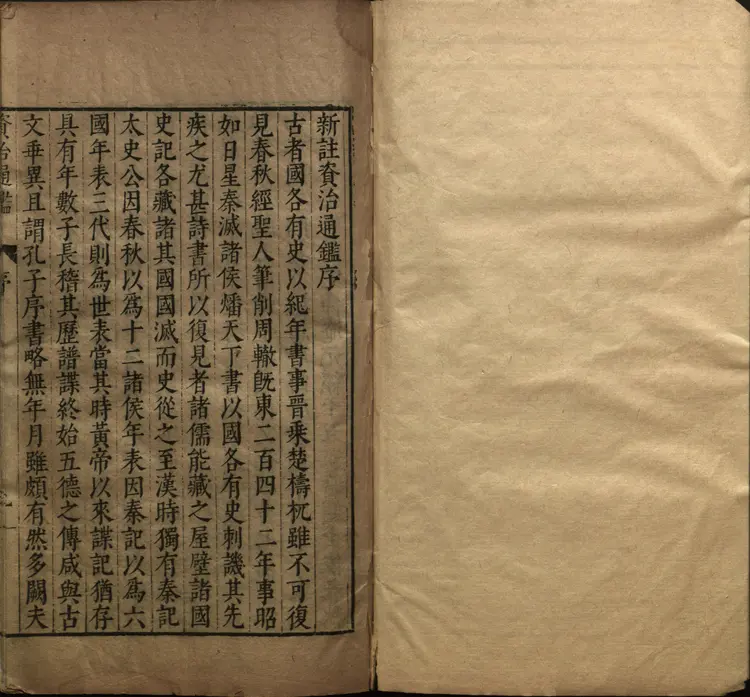 新註資治通鑑序
古者國各有史以紀年書事晉乘楚檮杌雖不可復
見春秋經聖人筆削周轍旣東二百四十二年事昭
如日星秦滅諸侯燔天下書以國各有史刺譏其先
疾之尤甚詩書所以復見者諸儒能藏之屋壁諸國
史記各藏諸其國國滅而史從之至漢時獨有秦記
太史公因春秋以爲十二諸侯年表因秦記以爲六
國年表三代則爲世表當其時黃帝以來諜記猶存
具有年數子長稽其歷譜諜終始五德之傳咸與古
文乖異且謂孔子序書略無年月雖頗有然多闕夫
資治通鑑 序